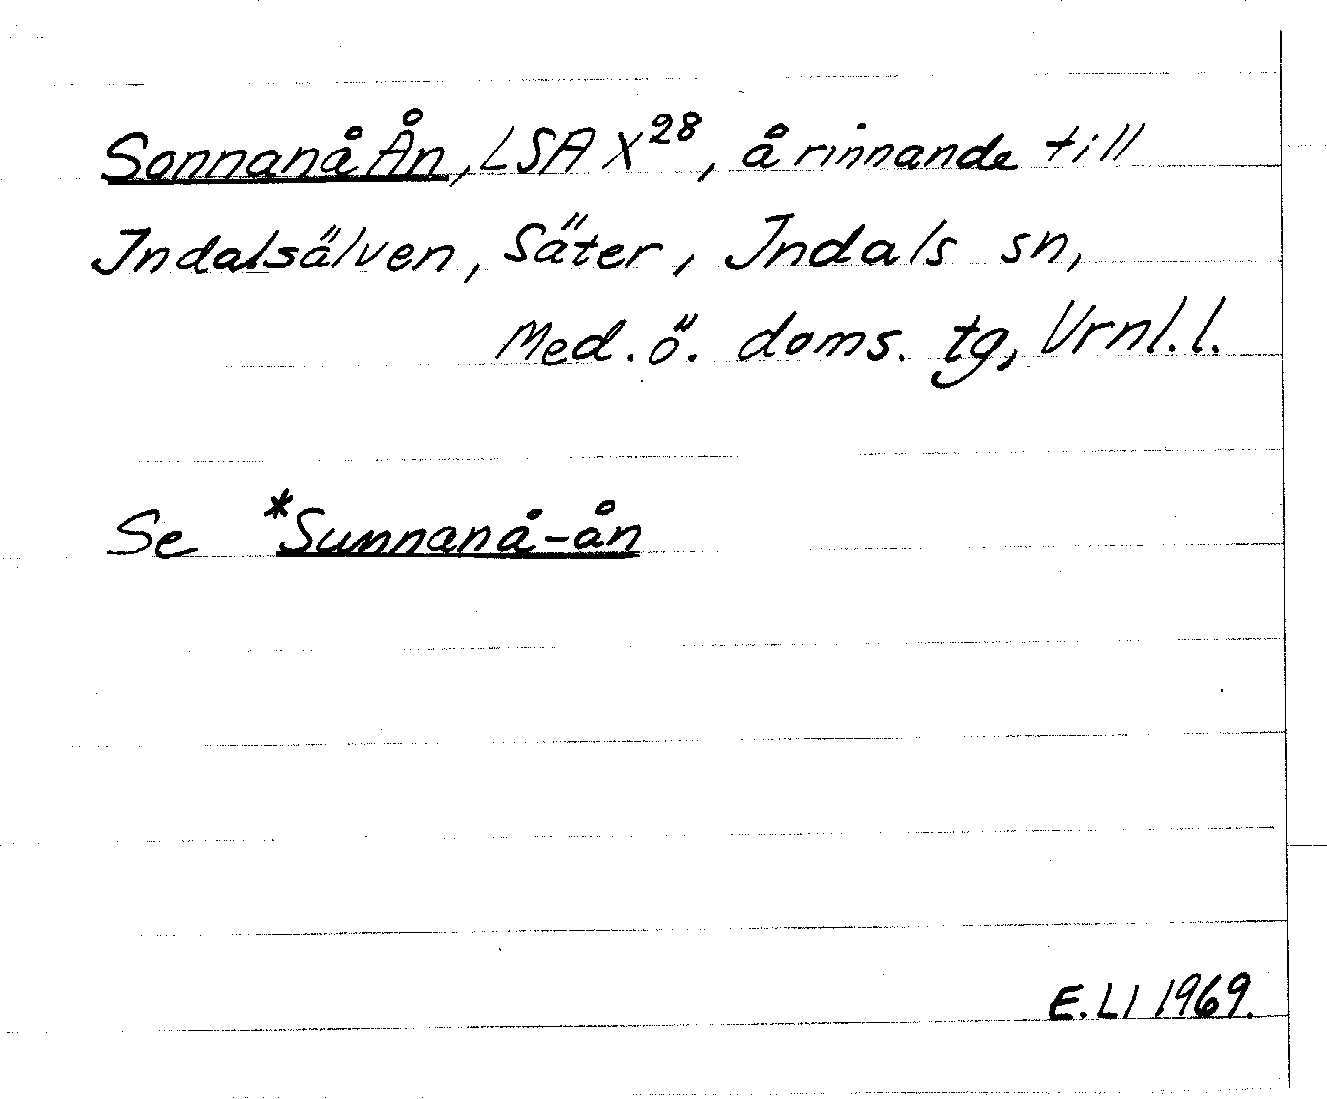 Sonnanå Ån, LSA X²⁸, å rinnande till
Indalsälven, Säter, Indals sn,
Med. ö. doms. tg, Vrnl. l.
Se *Sunnanå-ån
E. LI 1969.